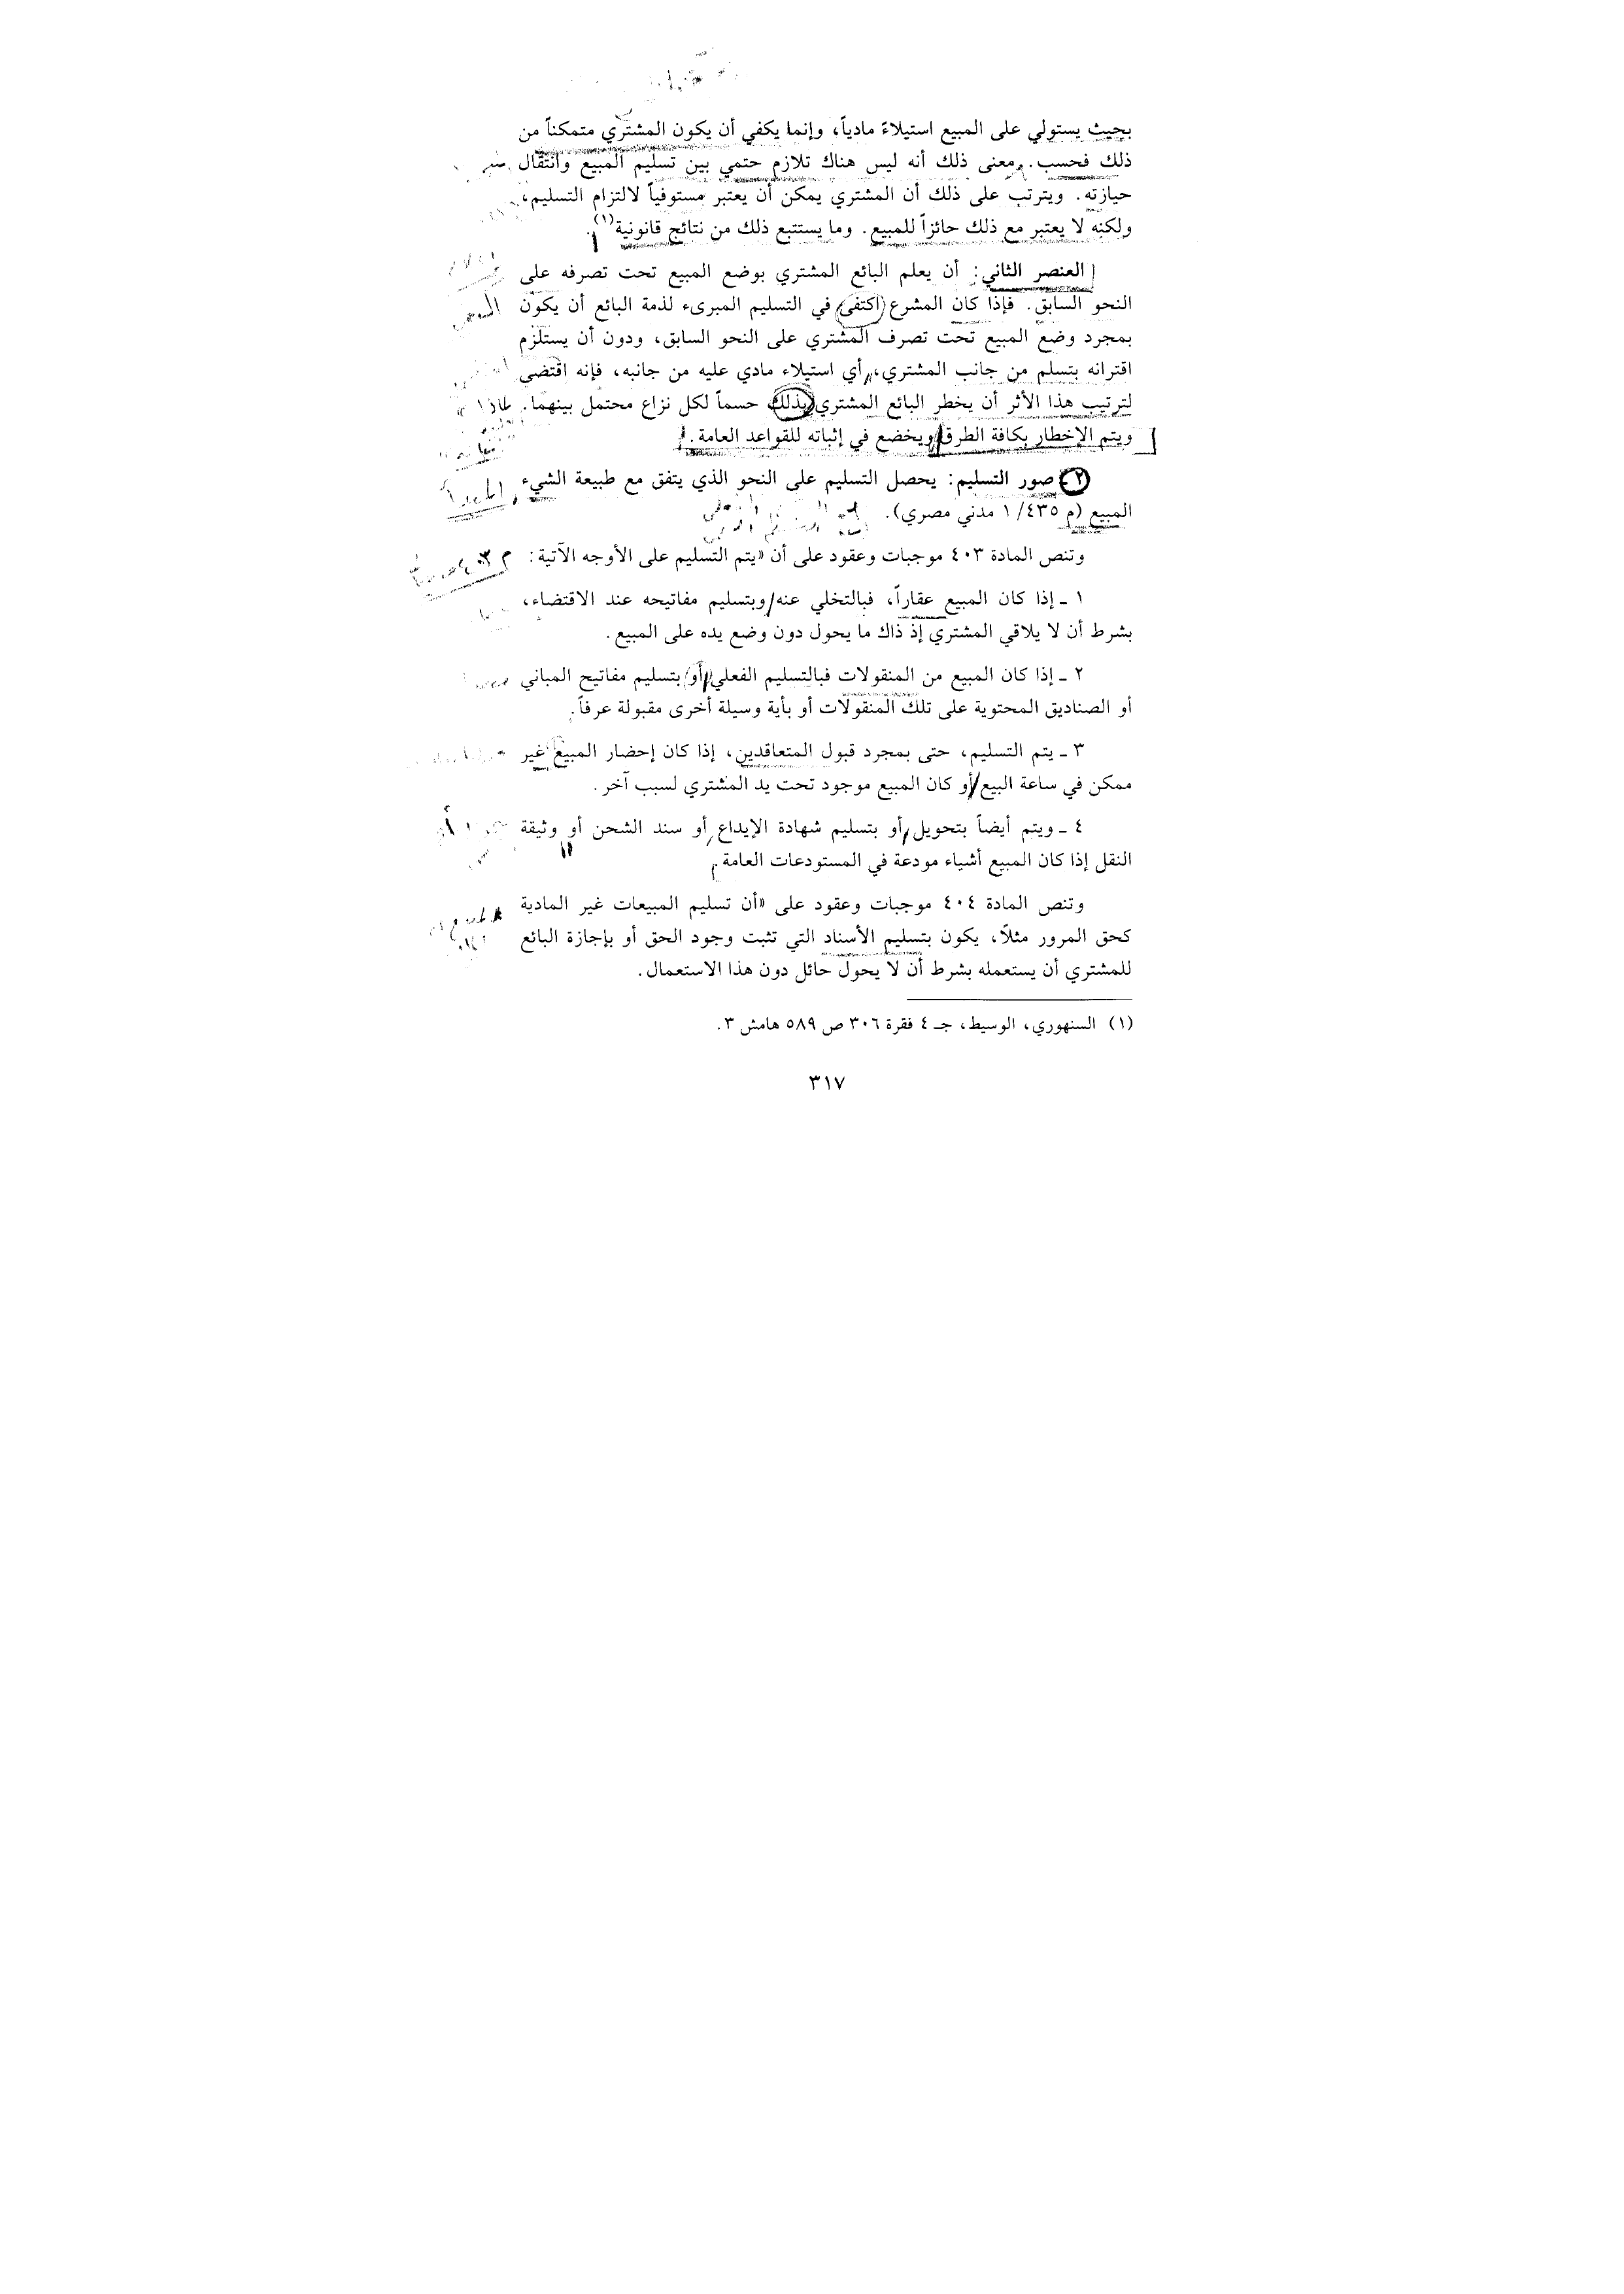 بحيث يستولي على المبيع استيلاءً مادياً، وإنما يكفي أن يكون المشتري متمكناً من
ذلك فحسب. ومعنى ذلك أنه ليس هناك تلازم حتمي بين تسليم المبيع وانتقال
حيازته. ويترتب على ذلك أن المشتري يمكن أن يعتبر مستوفياً لالتزام التسليم،
ولكنه لا يعتبر مع ذلك حائزاً للمبيع. وما يستتبع ذلك من نتائج قانونية(١).
العنصر الثاني: أن يعلم البائع المشتري بوضع المبيع تحت تصرفه على
النحو السابق. فإذا كان المشرع اكتفى في التسليم المبرىء لذمة البائع أن يكون
بمجرد وضع المبيع تحت تصرف المشتري على النحو السابق، ودون أن يستلزم
اقترانه بتسلم من جانب المشتري، أي استيلاء مادي عليه من جانبه، فإنه اقتضى
لترتيب هذا الأثر أن يخطر البائع المشتري بذلك حسماً لكل نزاع محتمل بينهما.
ويتم الإخطار بكافة الطرق ويخضع في إثباته للقواعد العامة.
٢ صور التسليم: يحصل التسليم على النحو الذي يتفق مع طبيعة الشيء
المبيع (م ٤٣٥/ ١ مدني مصري).
وتنص المادة ٤٠٣ موجبات وعقود على أن «يتم التسليم على الأوجه الآتية:
١ ـ إذا كان المبيع عقاراً، فبالتخلي عنه وبتسليم مفاتيحه عند الاقتضاء،
بشرط أن لا يلاقي المشتري إذ ذاك ما يحول دون وضع يده على المبيع.
٢ ـ إذا كان المبيع من المنقولات فبالتسليم الفعلي أو بتسليم مفاتيح المباني
أو الصناديق المحتوية على تلك المنقولات أو بأية وسيلة أخرى مقبولة عرفاً.
٣ ـ يتم التسليم، حتى بمجرد قبول المتعاقدين، إذا كان إحضار المبيع غير
ممكن في ساعة البيع أو كان المبيع موجود تحت يد المشتري لسبب آخر.
٤ ـ ويتم أيضاً بتحويل أو بتسليم شهادة الإيداع أو سند الشحن أو وثيقة
النقل إذا كان المبيع أشياء مودعة في المستودعات العامة.
وتنص المادة ٤٠٤ موجبات وعقود على «أن تسليم المبيعات غير المادية
كحق المرور مثلاً، يكون بتسليم الأسناد التي تثبت وجود الحق أو بإجازة البائع
للمشتري أن يستعمله بشرط أن لا يحول حائل دون هذا الاستعمال.
(١) السنهوري، الوسيط، جـ ٤ فقرة ٣٠٦ ص ٥٨٩ هامش ٣.
٣١٧